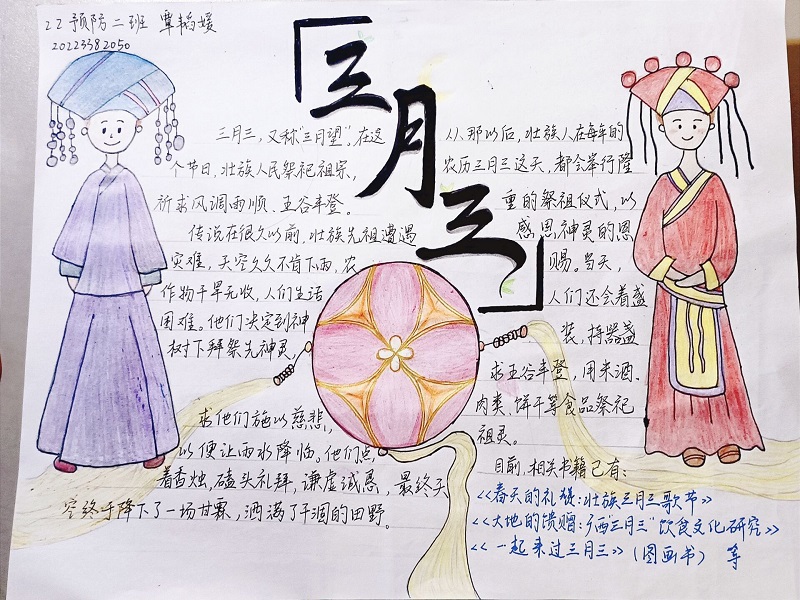 22预防二班 覃韬媛
20223382050
「三月三」
三月三,又称"三月望"。在这
个节日,壮族人民祭祀祖宗,
祈求风调雨顺、五谷丰登。
传说在很久以前,壮族先祖遭遇
灾难,天空久久不肯下雨,农
作物干旱无收,人们生活
困难。他们决定到神
树下拜祭先神灵,
求他们施以慈悲,
以便让雨水降临。他们点
着香烛,磕头礼拜,谦虚诚恳,最终天
空终于降下了一场甘霖,洒满了干涸的田野。
从那以后,壮族人在每年的
农历三月三这天,都会举行隆
重的祭祖仪式,以
感恩神灵的恩
赐。当天,
人们还会着盛
装,持器盛
求五谷丰登,用米酒、
肉类、饼干等食品祭祀
祖灵。
目前,相关书籍已有:
《春天的礼赞:壮族三月三歌节》
《大地的馈赠:广西"三月三"饮食文化研究》
《一起来过三月三》(图画书) 等